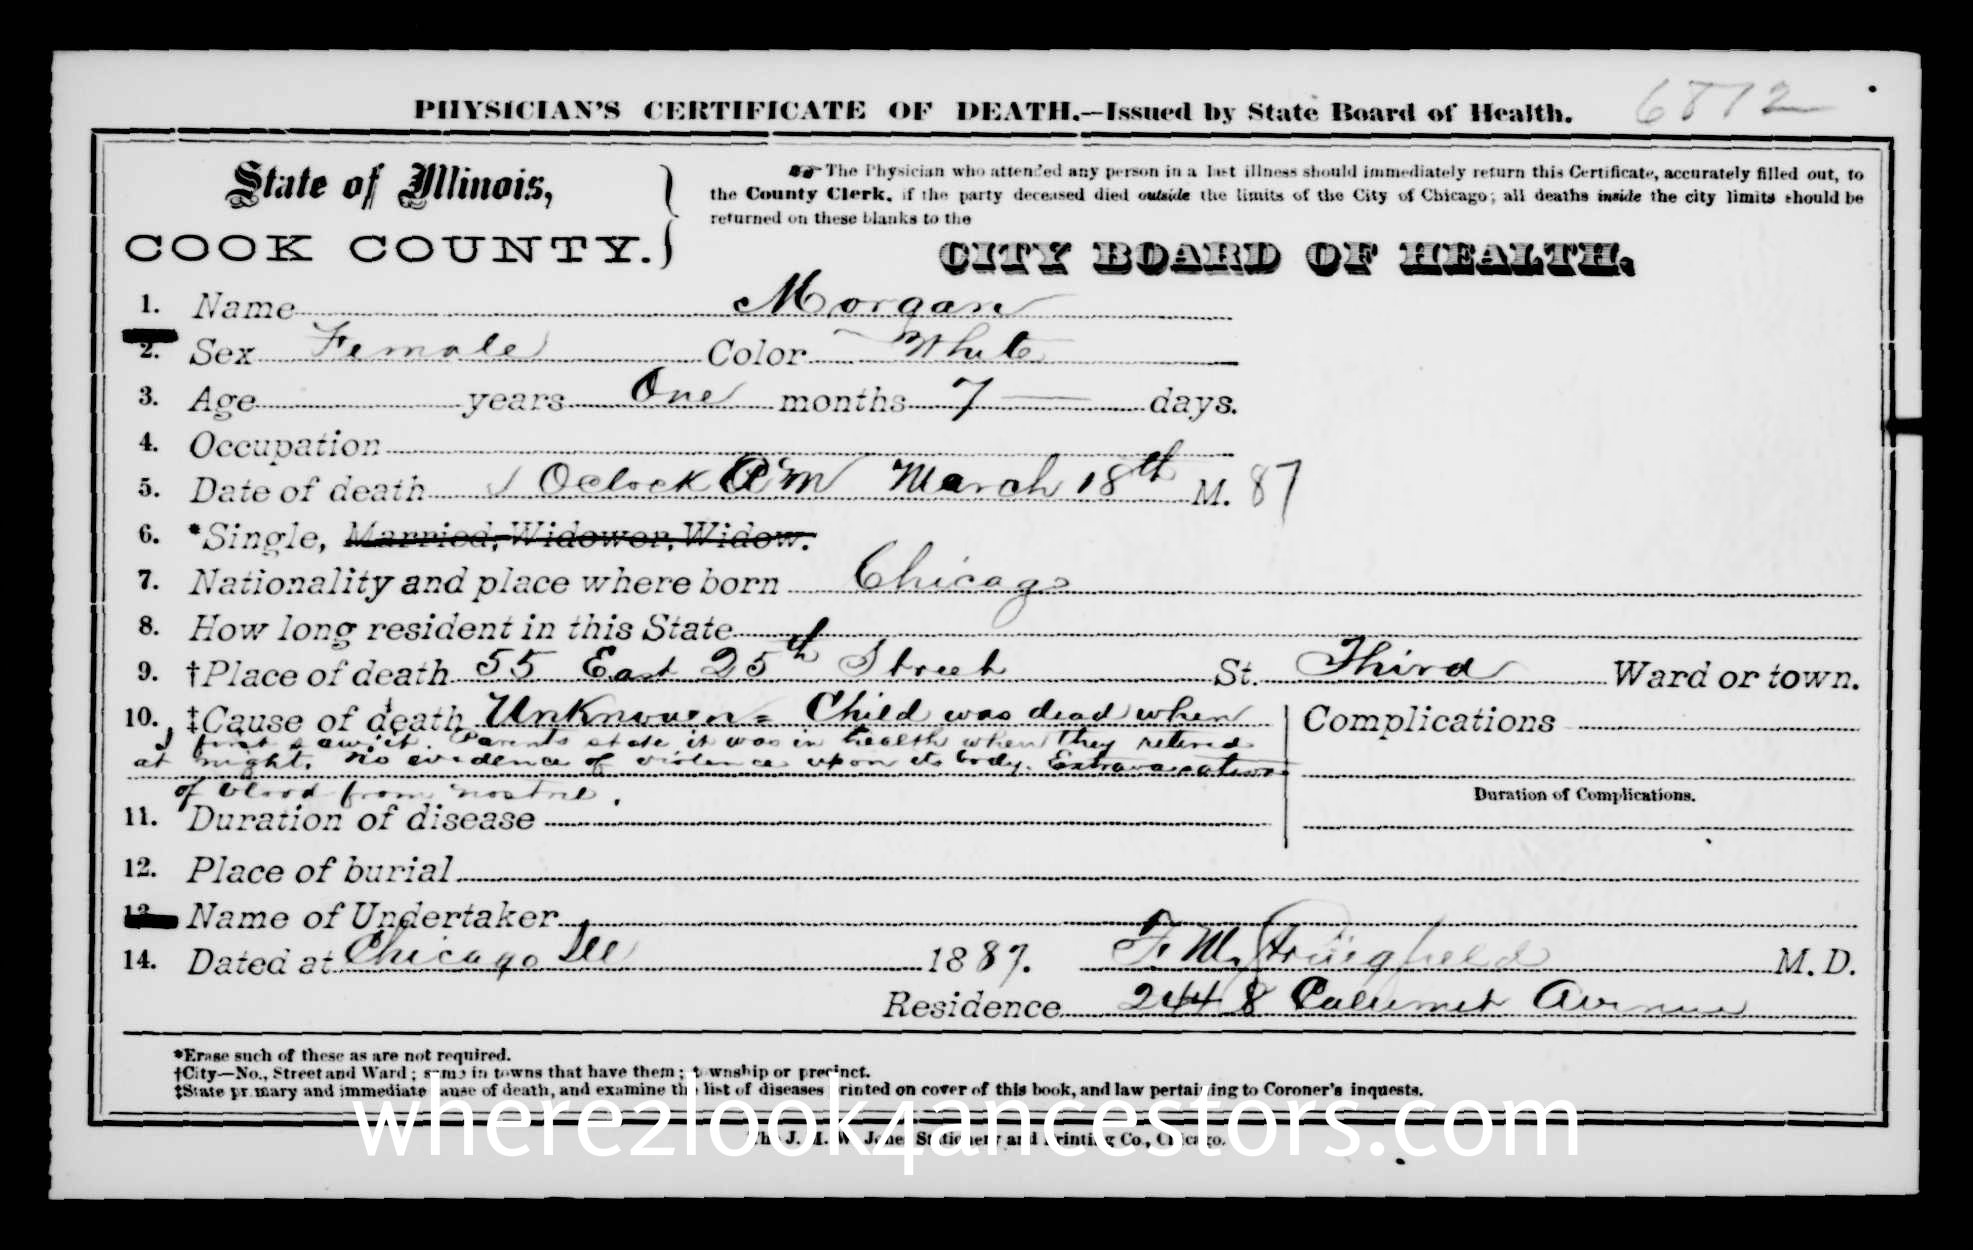 PHYSICIAN'S CERTIFICATE OF DEATH.—Issued by State Board of Health. 6812
State of Illinois,
COOK COUNTY.
The Physician who attended any person in a last illness should immediately return this Certificate, accurately filled out, to
the County Clerk, if the party deceased died outside the limits of the City of Chicago; all deaths inside the city limits should be
returned on these blanks to the
CITY BOARD OF HEALTH.
1. Name Morgan
2. Sex Female Color White
3. Age years One months 7 days.
4. Occupation
5. Date of death 1 Oclock A M March 18th M. 87
6. *Single, Married, Widower, Widow.
7. Nationality and place where born Chicago
8. How long resident in this State
9. †Place of death 55 East 25th Street St. Third Ward or town.
10. ‡Cause of death Unknown = Child was dead when Complications
I first saw it. Parents state it was in health when they retired
at night. No evidence of violence upon its body. Extravasation
of blood from nostril.
Duration of Complications.
11. Duration of disease
12. Place of burial
13. Name of Undertaker
14. Dated at Chicago Ill 1887. F. M. Stringfield M. D.
Residence 2448 Calumet Avenue
*Erase such of these as are not required.
†City—No., Street and Ward; same in towns that have them; township or precinct.
‡State primary and immediate cause of death, and examine the list of diseases printed on cover of this book, and law pertaining to Coroner's inquests.
where2look4ancestors.com
The J. M. W. Jones Stationery and Printing Co., Chicago.